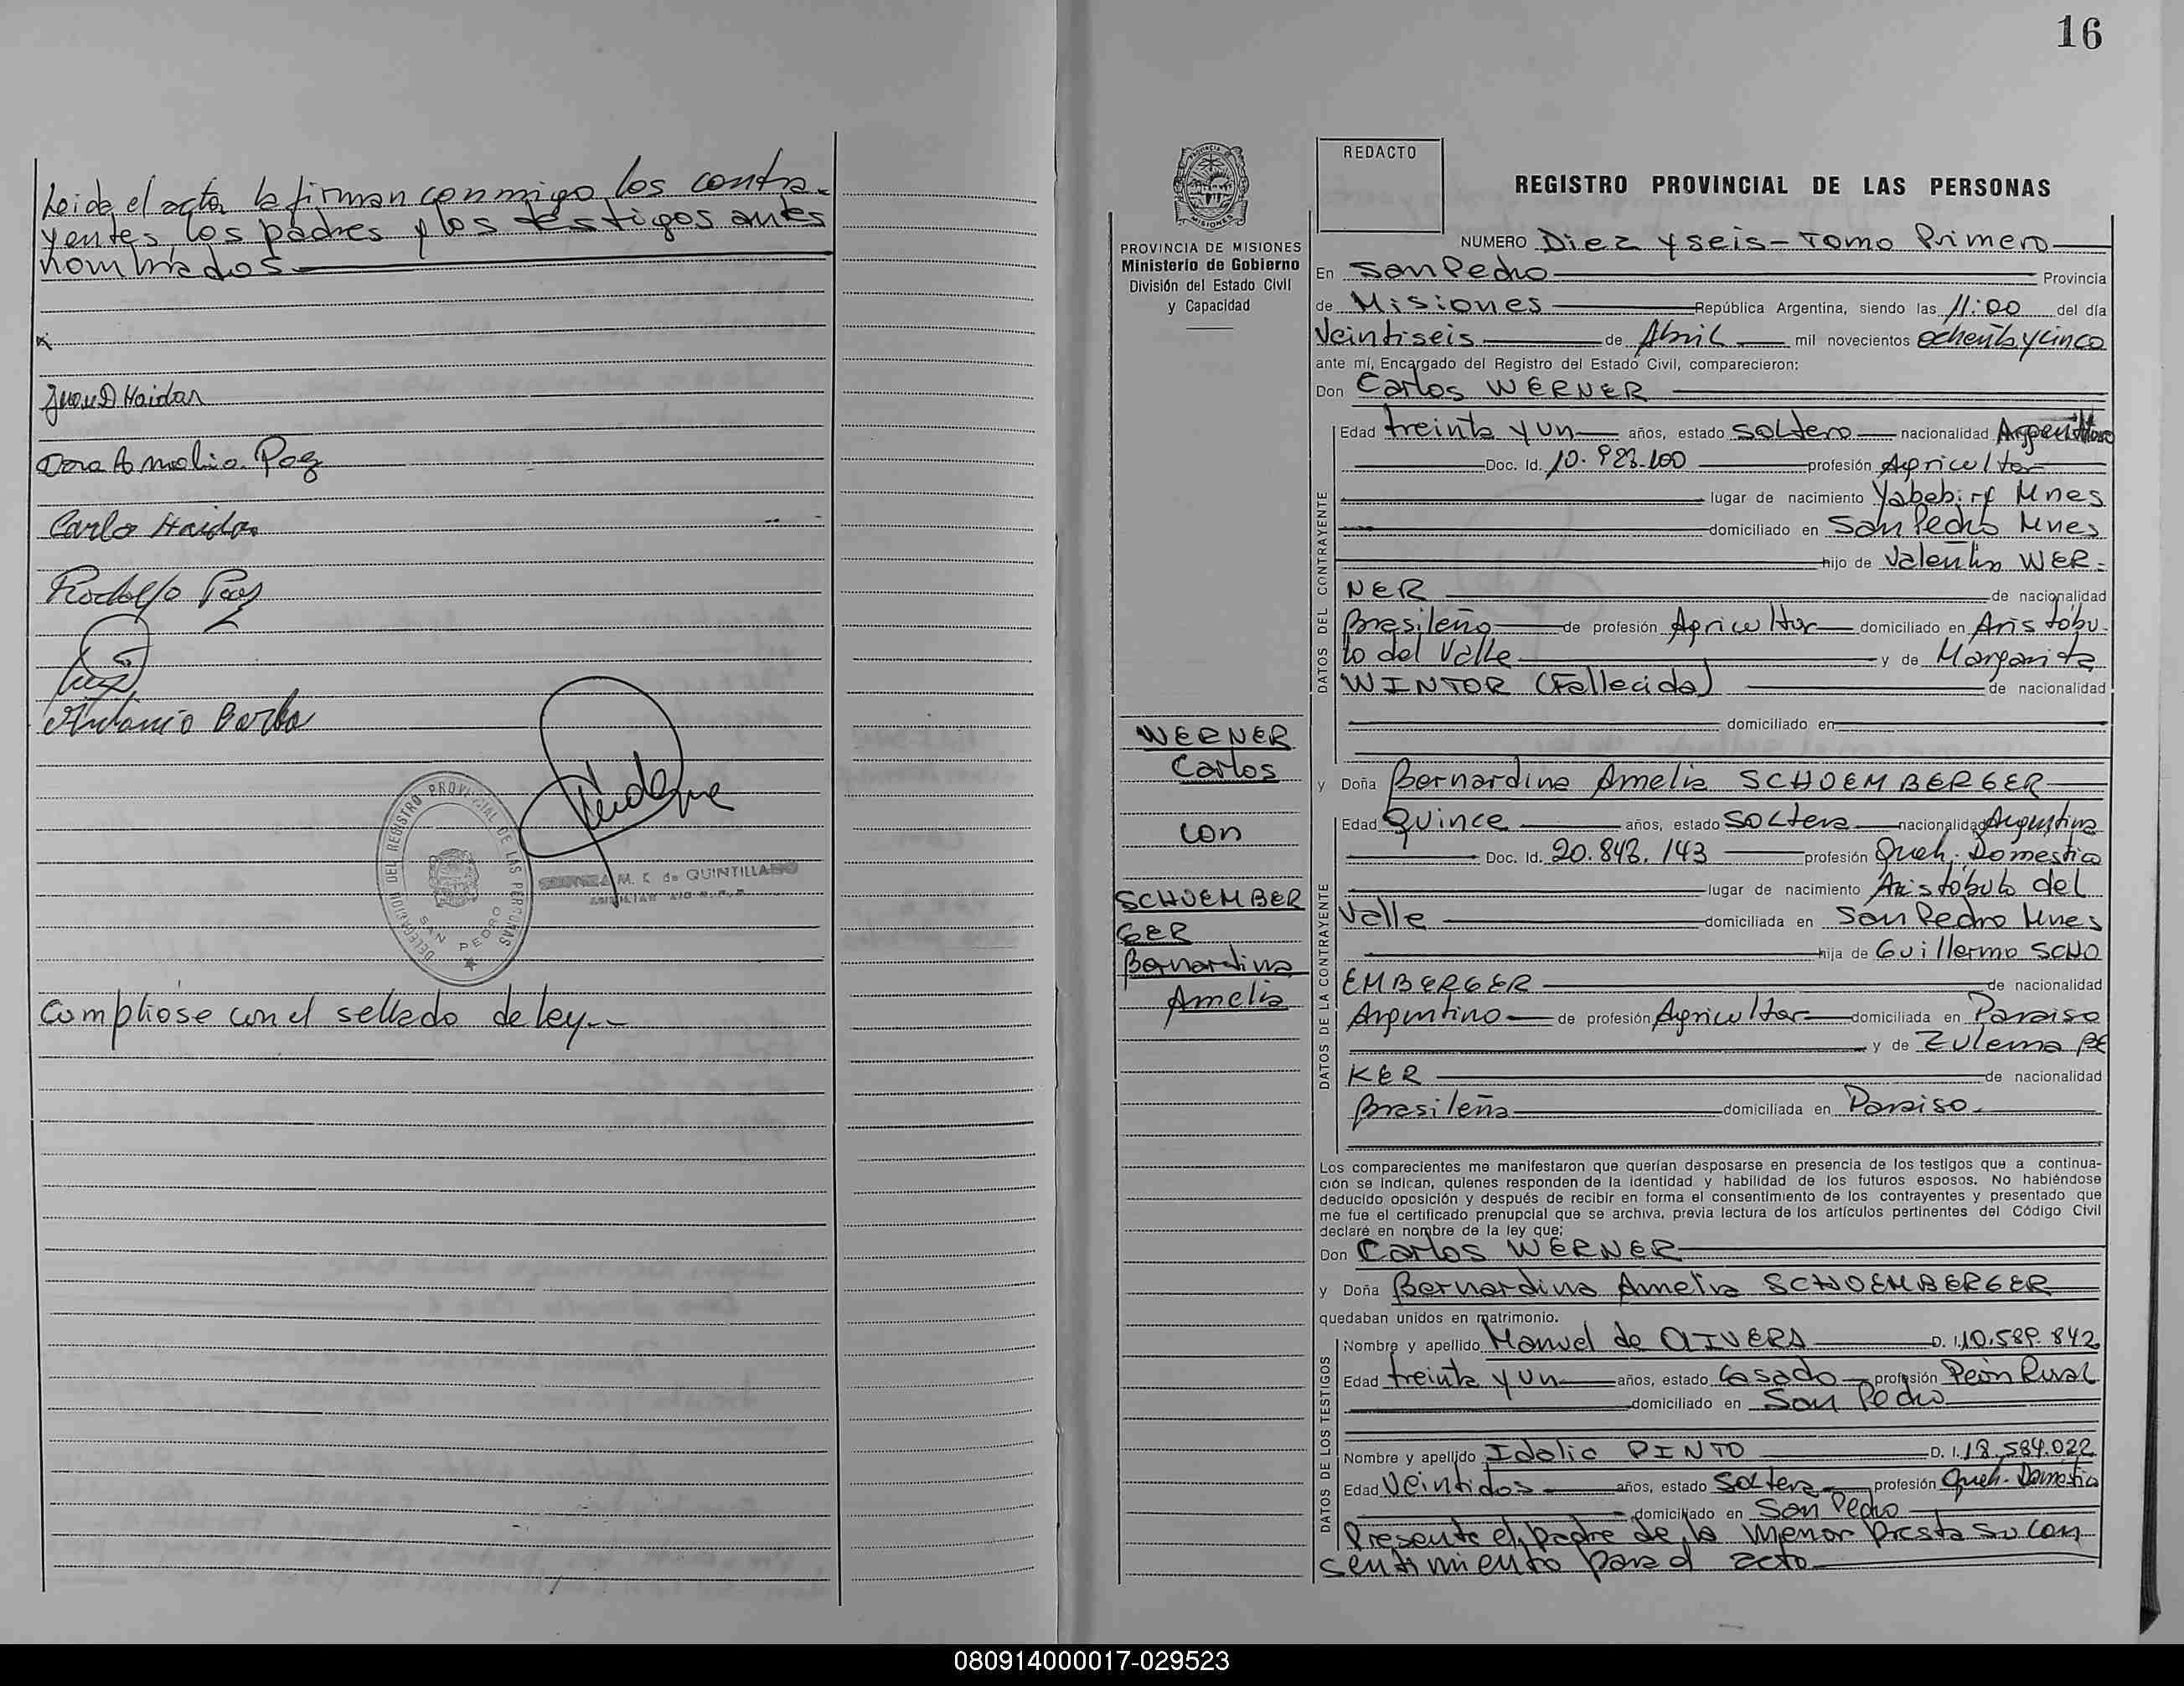 Leida el acta la firman conmigo los contra-
yentes, los padres y los testigos antes
nombrados
Juan D Haidar
Dora Amalia Paz
Carlo Haidar
Rodolfo Paz
Antonio Borba
DELEGACION DEL REGISTRO PROVINCIAL DE LAS PERSONAS
SAN PEDRO
M. K. de QUINTILLANO
Cumpliose con el sellado de ley.-
16
PROVINCIA DE MISIONES
Ministerio de Gobierno
División del Estado Civil
y Capacidad
WERNER
Carlos
con
SCHOEMBER
GER
Bernardina
Amelia
REDACTO
REGISTRO PROVINCIAL DE LAS PERSONAS
NUMERO Diez y seis - Tomo Primero
En San Pedro Provincia
de Misiones República Argentina, siendo las 11:00 del día
Veintiseis de Abril mil novecientos ochenta y cinco
ante mí, Encargado del Registro del Estado Civil, comparecieron:
Don Carlos WERNER
DATOS DEL CONTRAYENTE
Edad treinta y un años, estado soltero nacionalidad Argentino
Doc. Id. 10.923.100 profesión Agricultor
lugar de nacimiento Yabebiry Mnes
domiciliado en San Pedro Mnes
hijo de Valentin WER-
NER de nacionalidad
Brasileño de profesión Agricultor domiciliado en Aristóbu-
lo del Valle y de Margarita
WINTOR (Fallecida) de nacionalidad
domiciliado en
y Doña Bernardina Amelia SCHOEMBERGER
DATOS DE LA CONTRAYENTE
Edad Quince años, estado soltera nacionalidad Argentina
Doc. Id. 20.843.143 profesión Queh. Domestica
lugar de nacimiento Aristóbulo del
Valle domiciliada en San Pedro Mnes
hija de Guillermo SCHO
EMBERGER de nacionalidad
Argentino de profesión Agricultor domiciliada en Paraiso
y de Zulema BE
KER de nacionalidad
Brasileña domiciliada en Paraiso.
Los comparecientes me manifestaron que querían desposarse en presencia de los testigos que a continua-
ción se indican, quienes responden de la identidad y habilidad de los futuros esposos. No habiéndose
deducido oposición y después de recibir en forma el consentimiento de los contrayentes y presentado que
me fue el certificado prenupcial que se archiva, previa lectura de los artículos pertinentes del Código Civil
declaré en nombre de la ley que;
Don Carlos WERNER
y Doña Bernardina Amelia SCHOEMBERGER
quedaban unidos en matrimonio.
DATOS DE LOS TESTIGOS
Nombre y apellido Manuel de OLIVERA D. I. 10.589.842
Edad treinta y un años, estado Casado profesión Peón Rural
domiciliado en San Pedro
Nombre y apellido Idalic PINTO D. I. 18.584.022
Edad Veintidos años, estado Soltera profesión Queh. Domestica
domiciliado en San Pedro
Presente el padre de la menor presta su con
sentimiento para el acto
080914000017-029523